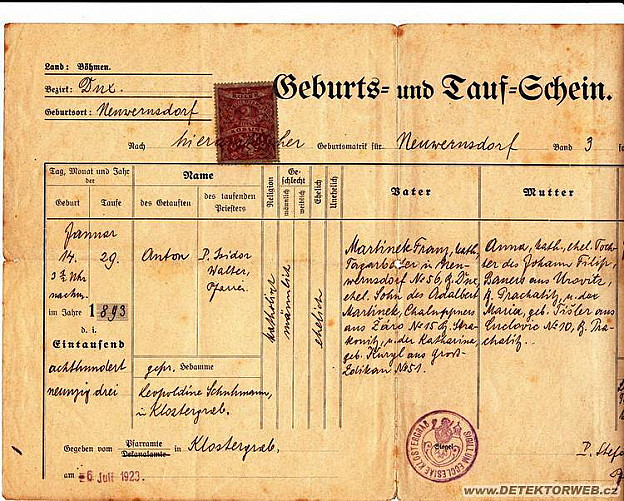 Land: Böhmen.
Bezirk: Dux.
Geburtsort: Neuwernsdorf
Geburts- und Tauf-Schein.
Nach hieramtlicher Geburtsmatrik für Neuwernsdorf Band 3
Tag, Monat und Jahr der
Geburt Taufe
Name
des Getauften des taufenden Priesters
Religion
Geschlecht
männlich
weiblich
Ehelich
Unehelich
Vater
Mutter
Jannar
14. 29.
3 ¾ Uhr
nachm.
im Jahre 1893
d. i.
Eintausend
achthundert
neunzig drei
Anton
P. Isidor
Walter,
Pfarrer
katholisch
männlich
ehelich
Martinek Franz, kath.
Tagarbeiter in Neu-
wernsdorf No 56, B. Dux,
ehel. Sohn des Adalbert
Martinek, Chaluppners
aus Žáro No 15 B. Stra-
konitz, u. der Katharina,
geb. Kurzl aus Groß-
Zdikau No 51.
Anna, kath., ehel. Toch-
ter des Johann Filip,
Bauers aus
B. Prachatitz, u. der
Maria, geb. Fišler aus
No 10, B. Pra-
chatitz.
gepr. Hebamme
Leopoldine Schuhmann,
in Klostergrab.
Gegeben vom Pfarramte in Klostergrab,
Dekanalamte
am -6. Juli 1923.
SIGILLUM ECCLESIAE KLOSTERGRAB
Siegel
WWW.DETEKTORWEB.CZ